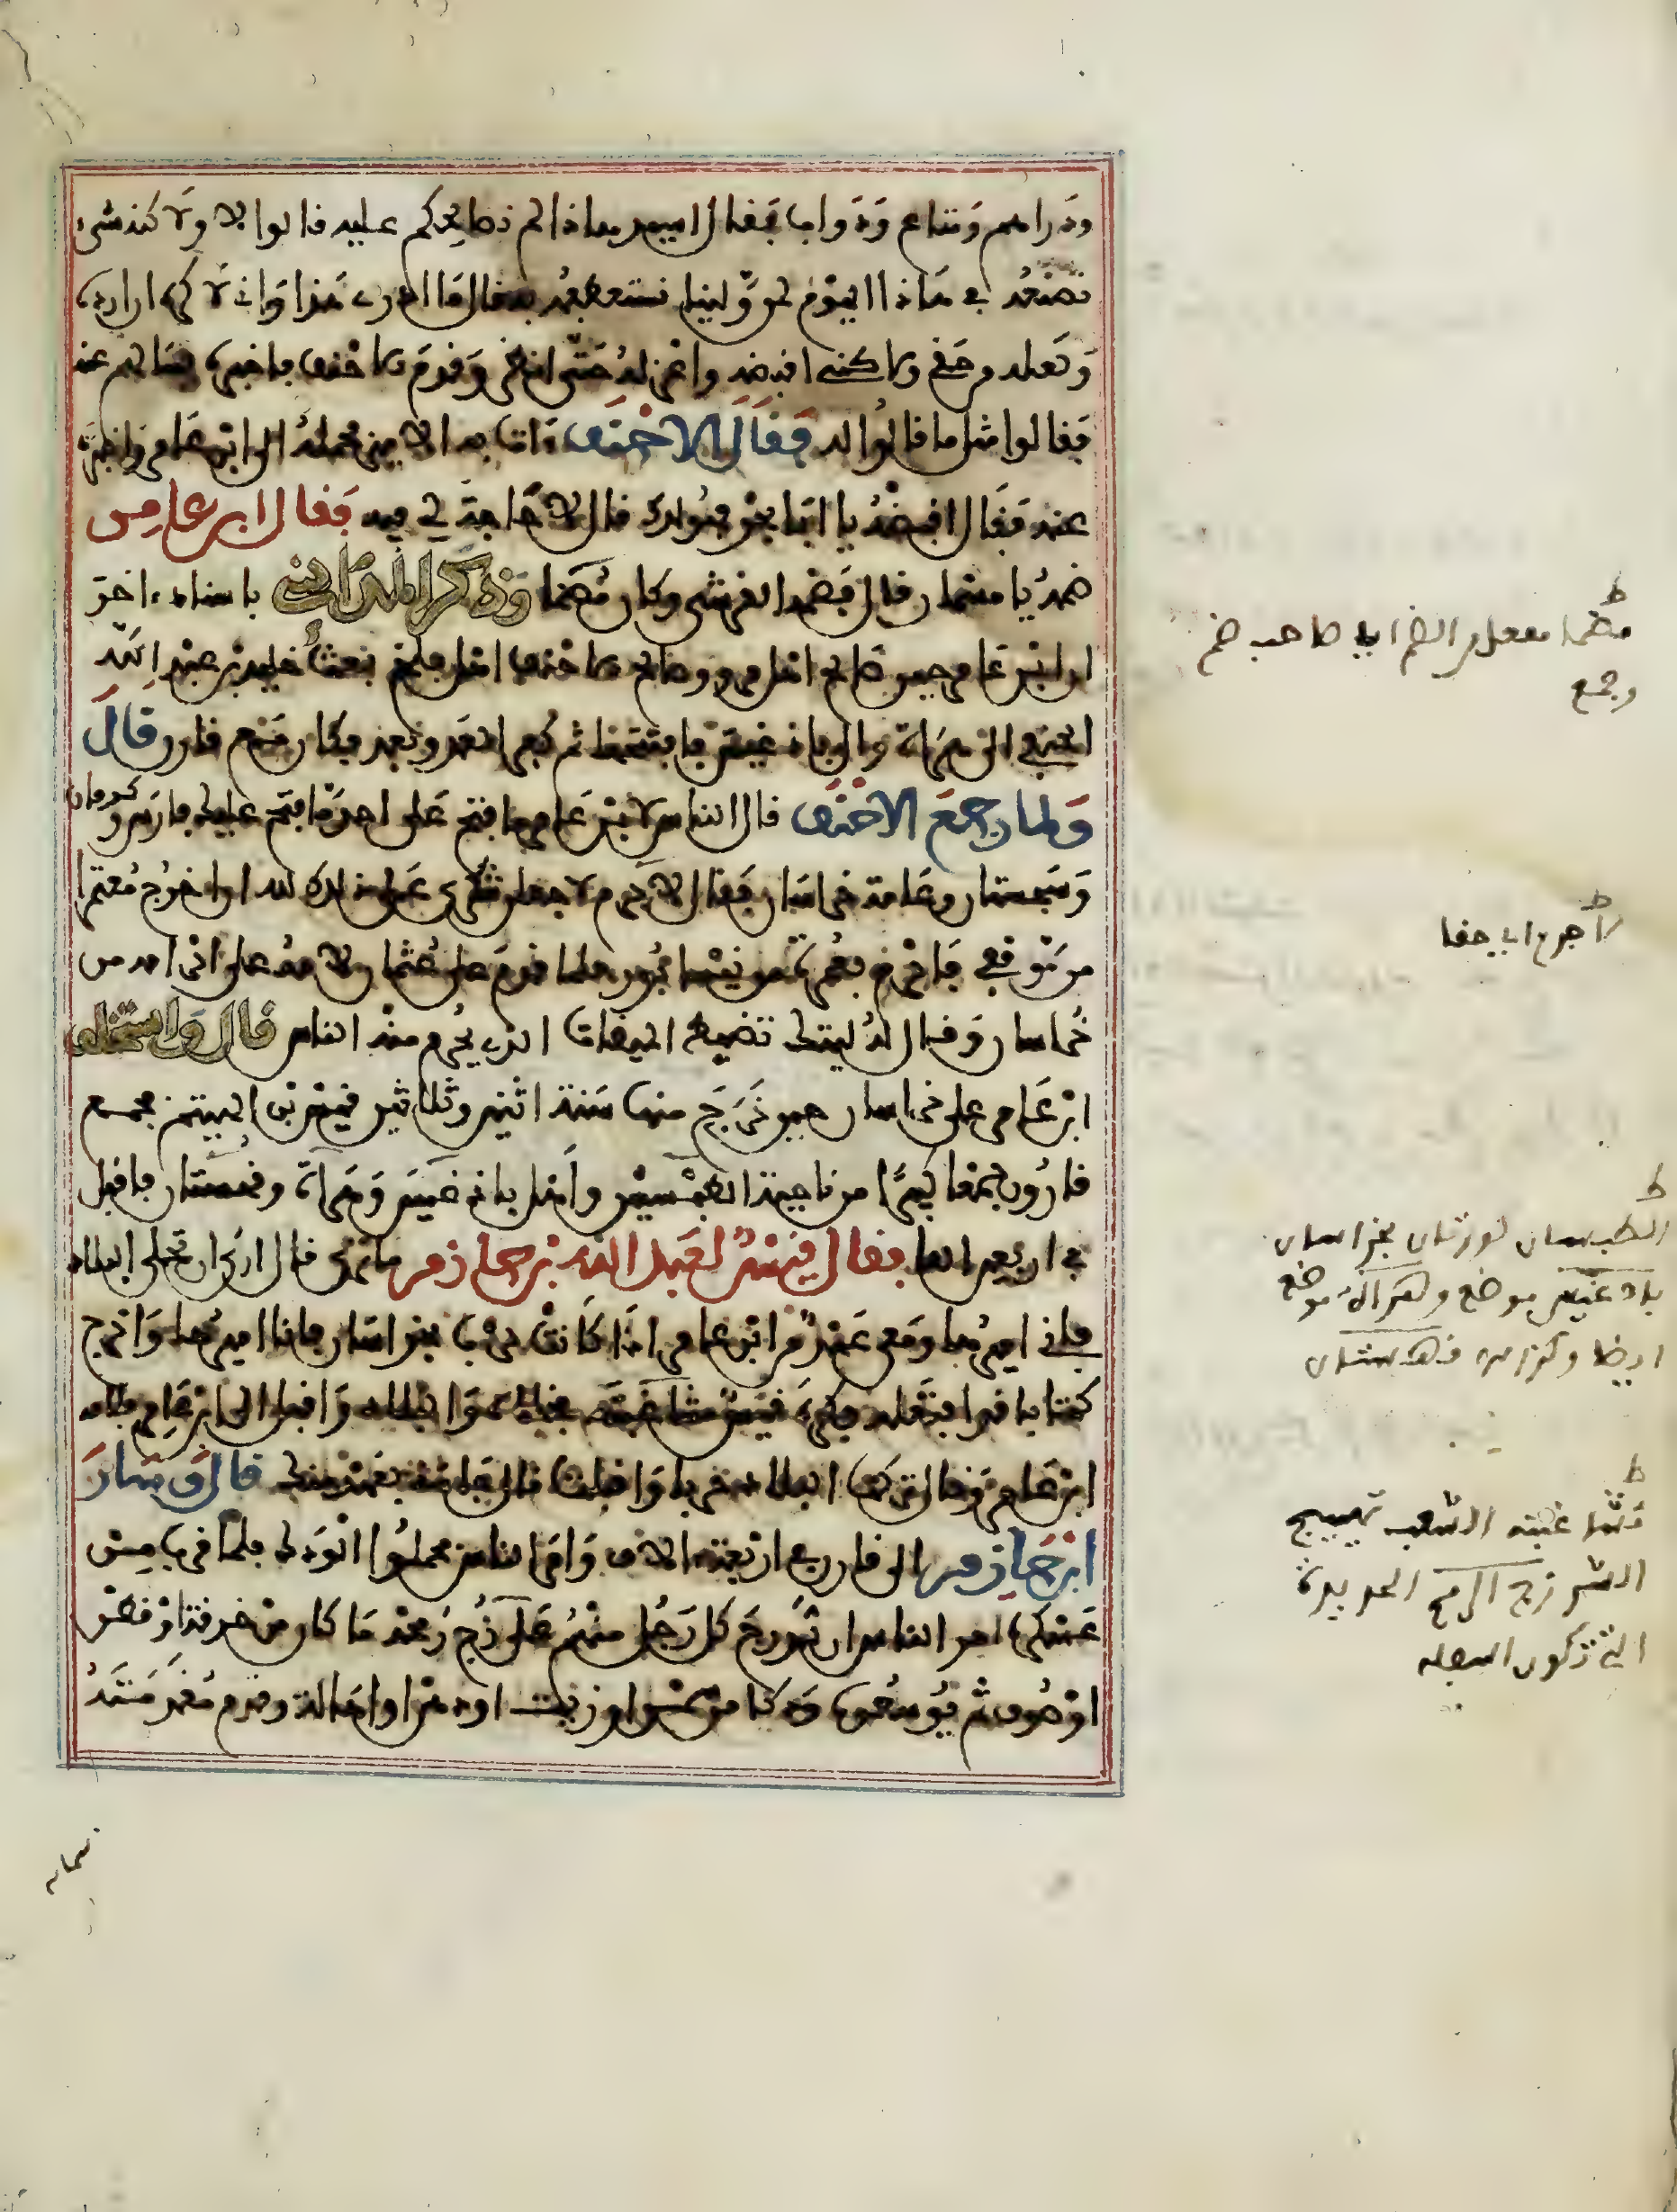 ودراهم ومتاع ودواب فقال اسيد ماذا لم نصالحكم عليه قالوا لا ولاكنه شيء
نصنعه في هاذا اليوم لمن ولينا نستعطفه به قال ما ادري هذا واني لاكره ان ارده
ولعله من حقي ولاكني اقبضه واعزله حتى انظر وقدم الاحنف فاخبره فسالهم عنه
فقالوا مثل ما قالوا له فقال الاحنف ءاتي به الامير فحمله الى ابن عامر واخبره
عنه فقال اقبضه يا ابا بحر فهو لك قال لا حاجة لي فيه فقال ابن عامر
ضمه يا مسمار قال فضمه القرشي وكان مضما وذكر المدائني باسناد ءاخر
ان ابن عامر حين صالح اهل مرو وصالح الاحنف اهل بلخ بعث خليد بن عبد الله
الحنفي الى هراة والى باذغيس فافتتحها ثم كفر العدو بعد فكان مع قارن قال
ولما رجع الاحنف قال الناس لابن عامر ما فتح على احد ما فتح عليك فارس وكرمان
وسجستان وعامة خراسان فقال لا جرم لاجعلن شكري على ذلك لله ان اخرج معتمرا
من موقفي فاحرم بعمرة من نيسابور فلما قدم على عثمان لامه على احرامه من
خراسان وقال له ليتك تضبط الميقات الذي يحرم منه الناس قال واستخلف
ابن عامر على خراسان حين خرج منها سنة اثنين وثلاثين قيس بن الهيثم فجمع
قارن جمعا كبيرا من ناحية الطبسين واهل باذغيس وهراة وقهستان فاقبل
في اربعين الفا فقال قيس لعبد الله بن حازم ما ترى قال ارى ان تخلي البلاد
فاني اميرها ومعي عهد من ابن عامر اذا كانت حرب بخراسان فانا اميرها واخرج
كتابا قد افتعله فكره قيس مشاغبته فخلاه والبلاد واقبل الى ابن عامر فلامه
ابن عامر وقال تركت البلاد حربا واقبلت قال جاءني بعهد منك قال وسار
ابن حازم الى قارن في اربعة الاف وامر الناس فحملوا الودك فلما قرب من
عسكره امر الناس ان يدرج كل رجل منهم على زج رمحه ما كان من خرقة او قطن
او صوف ثم يوسعوه ودكا من سمن او زيت او دهن او اهالة وقدم مقدمته
ستمائة
ط
مضما مفعل من الضم اي صاحب ضم
وجمع
ط
لا جرم اي حقا
ط
الطبسان كورتان بخراسان
باذغيس موضع وهراة موضع
ايضا وكذلك قهستان
ط
مشاغبته الشغب تهييج
الشر زج الرمح الحديدة
التي تكون اسفله